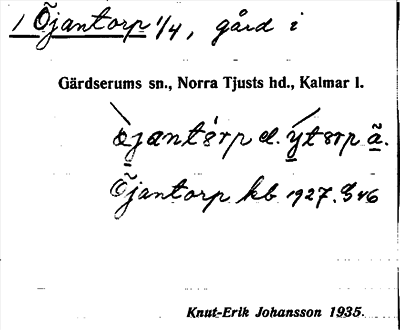 1 Öjantorp 1/4, gård i
Gärdserums sn., Norra Tjusts hd., Kalmar l.
öjantörp el. ytörp
Öjantorp kb 1927. S 46
Knut-Erik Johansson 1935.